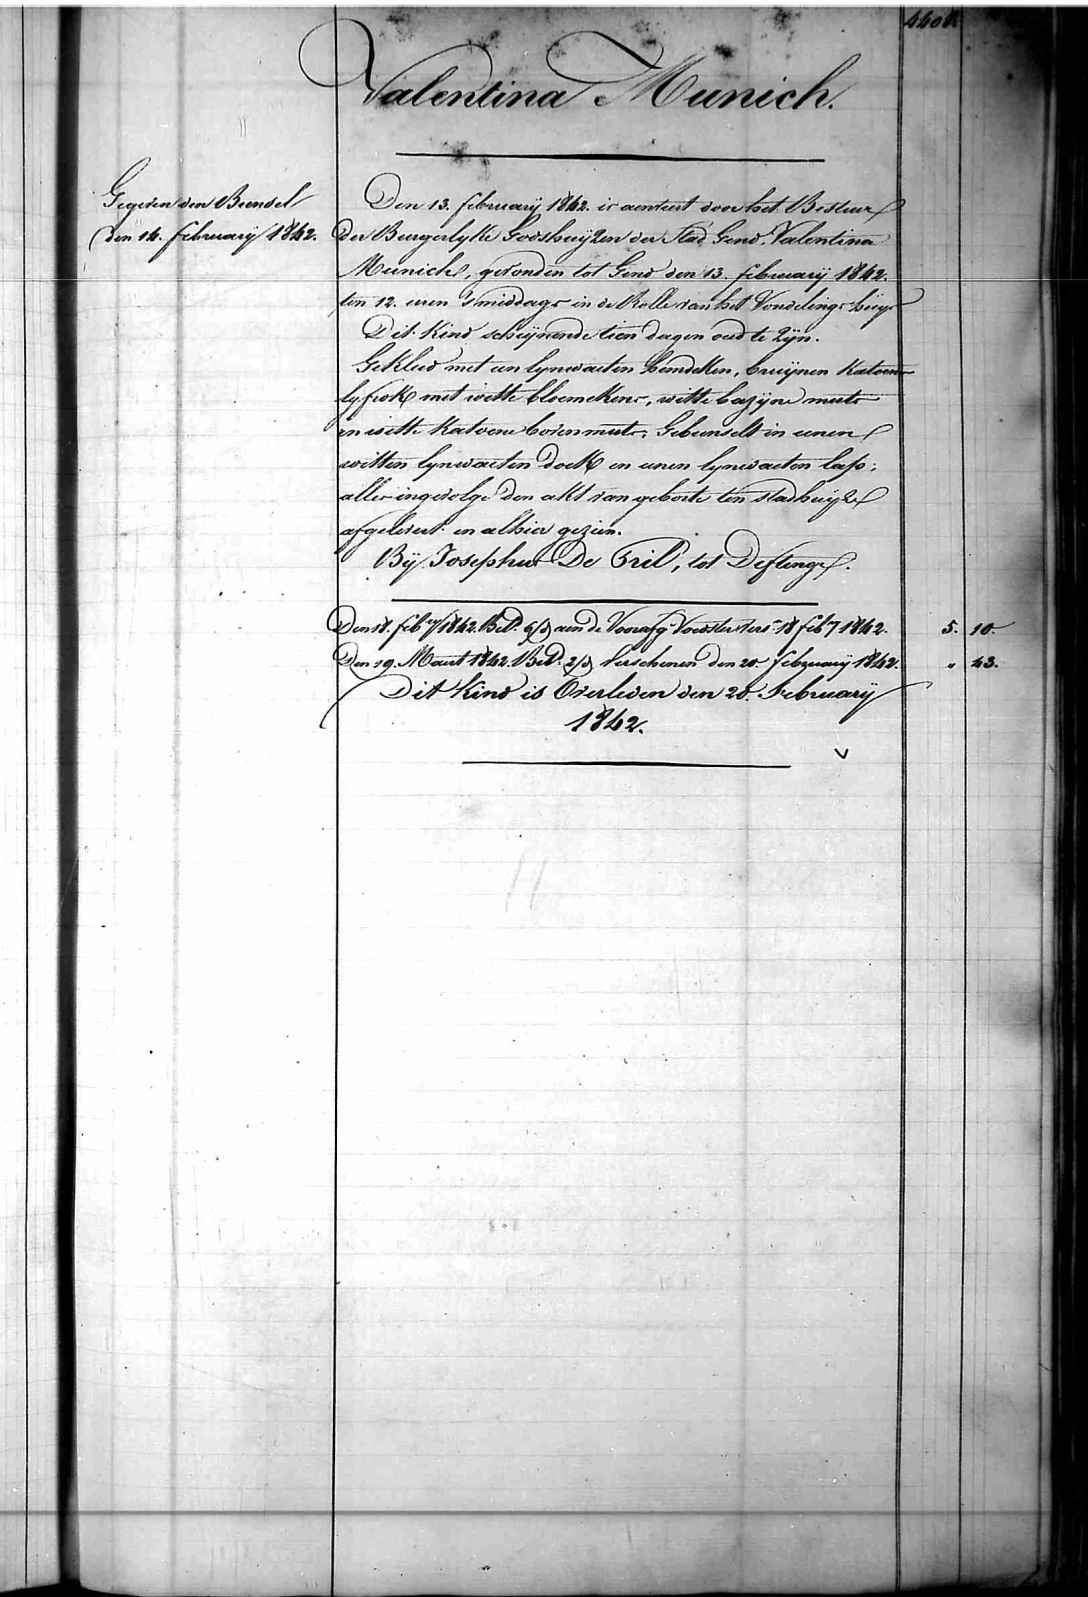 Valentina Munich.
Gegeven den Bunsel
den 14. february 1842.
Den 13. february 1842. is aenveert door het Bestuer
der Burgerlyke Godshuyzen der Stad Gend. Valentina
Munich, gevonden tot Gend den 13. february 1842.
ten 12. uren 's middags in de Rolle van het Vondelings-huys
Dit kind schynende tien dagen oud te zyn.
Gekleed met een lynwaeten hemdeken, bruynen katoenen
lyfrok met witte bloemekens, witte bazyne muts
en witte katoene bovenmuts. Gebunselt in eenen
witten lynwaeten doek en eenen lynwaeten lap;
alles ingevolge den akt van geboorte ten stadhuyze
afgelevert en alhier gezien.
By Josephus De Tril, tot Deftinge.
Den 18. feby 1842. Betd. 6/d aen de Voorafg. Voedster vers. 18 feby 1842. 5. 10.
Den 19. Maert 1842. Betd. 2/d Verschenen den 20. february 1842. " 43.
Dit kind is Overleden den 20. February
1842.